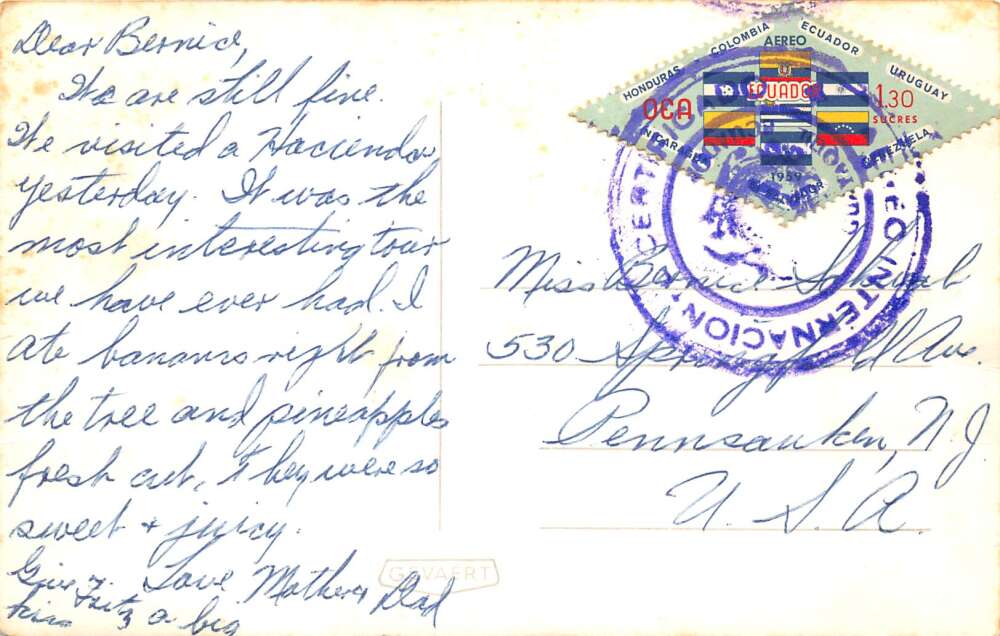 Dear Bernice,
We are still fine.
We visited a Hacienda
yesterday. It was the
most interesting tour
we have ever had. I
ate bananas right from
the tree and pineapples
fresh cut, they were so
sweet + juicy.
Love Mother & Dad
Give Fritz a big
kiss
HONDURAS COLOMBIA ECUADOR URUGUAY
AEREO
OEA ECUADOR 1.30
SUCRES
VENEZUELA
1959
INTERNACION
CERT
Miss Bernice Schwab
530 Springfield Ave.
Pennsauken, N.J.
U. S. A.
GEVAERT